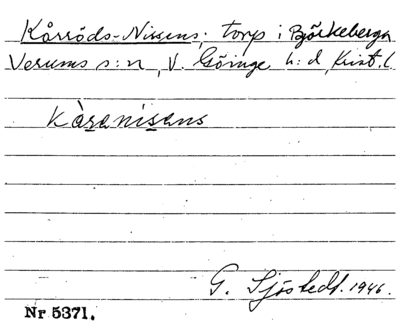 Kårröds-Nissens, torp i Björkeberga
Verums s:n, V. Göinge h:d, Krist. l.
kàranisans
G. Sjöstedt. 1946.
Nr 5371.